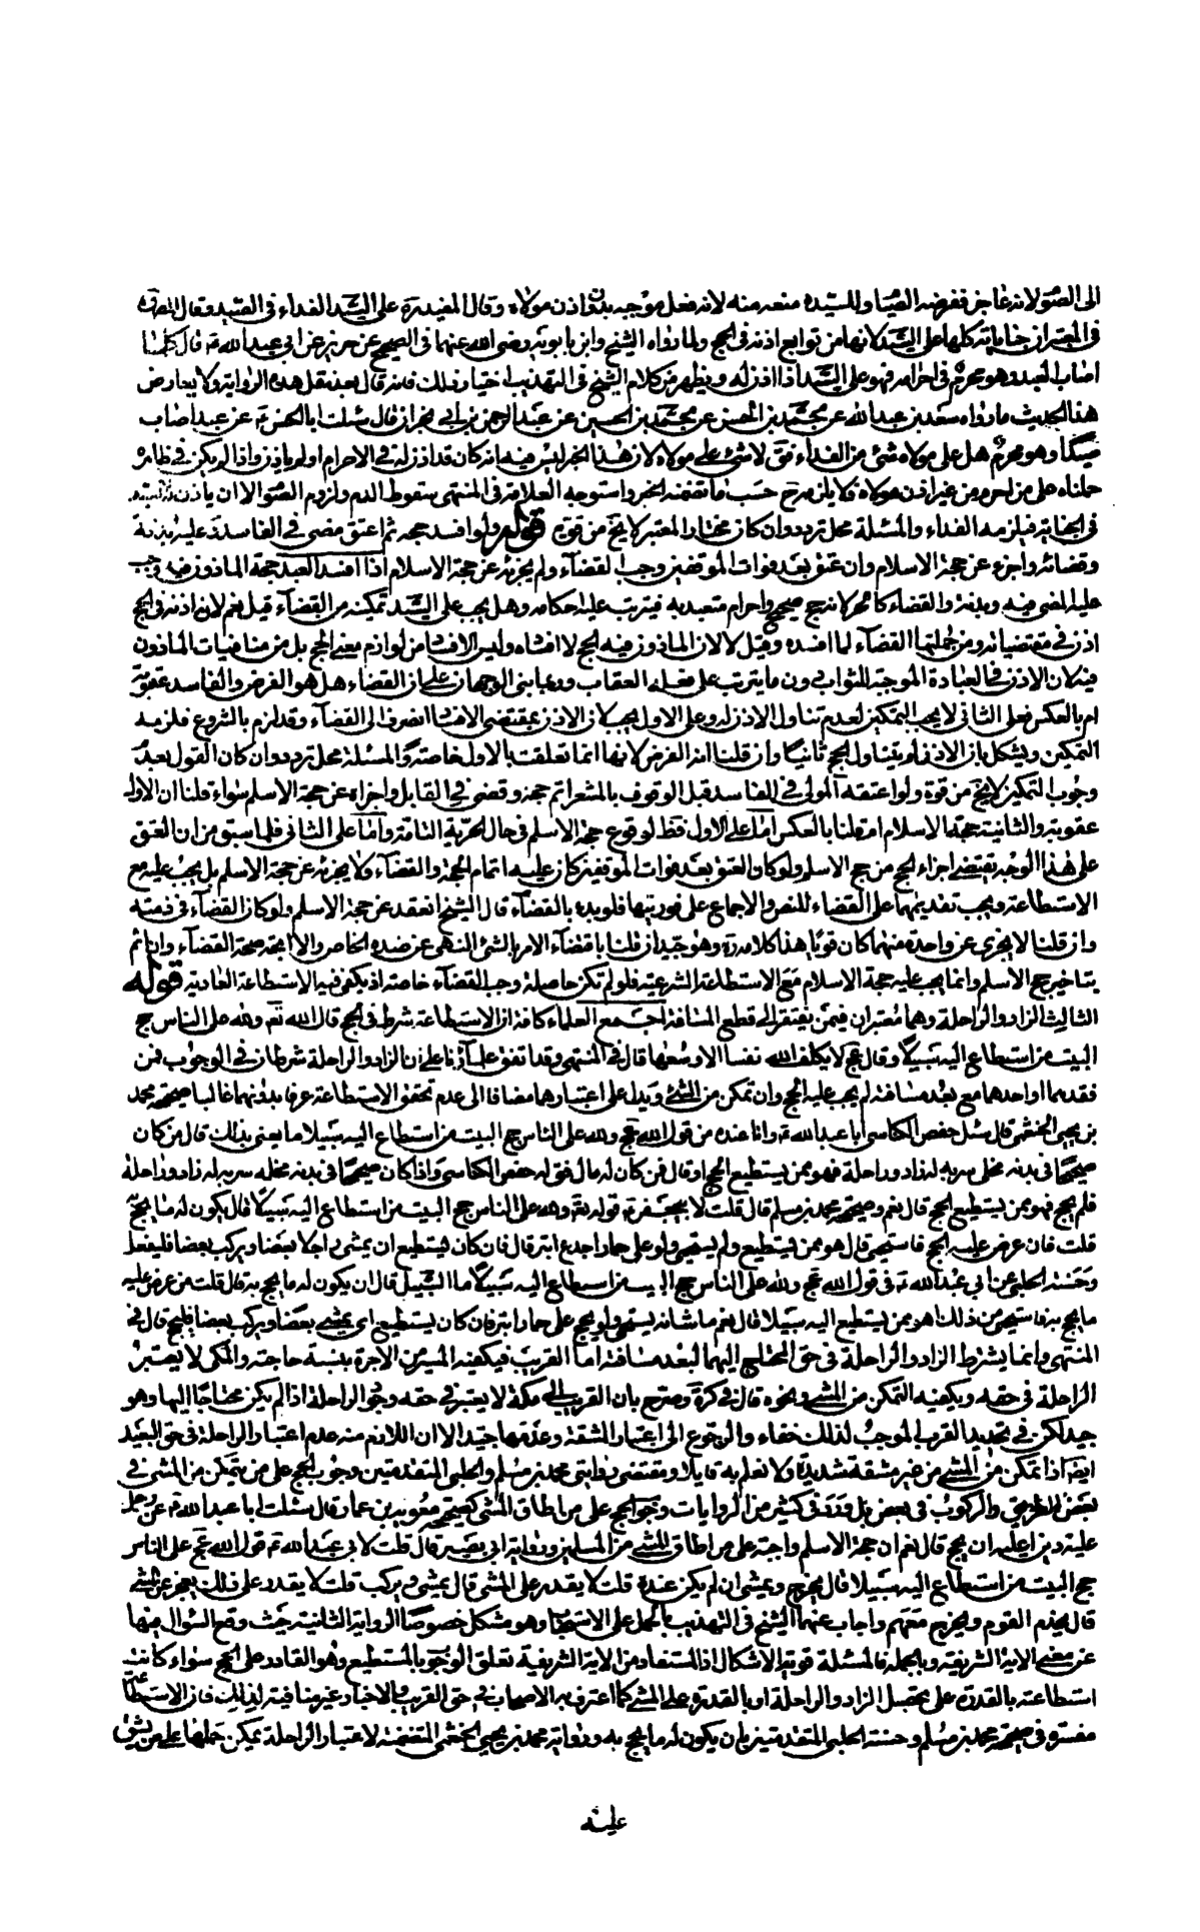 الى الصوم لانه عاجز ففرضه الصيام وللسيد منعه منه لانه فعل موجبه بدون اذن مولاه وقال المفيد ره على السيد الفداء في الصيد وقال المصنف
في المعتبر ان جناياته كلها على السيد لانها من توابع اذنه في الحج ولما رواه الشيخ وابن بابويه رضي الله عنهما في الصحيح عن حريز عن ابي عبد الله ع قال كلما
اصاب العبد وهو محرم في احرامه فهو على السيد اذا اذن له ويظهر من كلام الشيخ في التهذيب اختيار ذلك فانه قال بعد نقل هذه الرواية ولا يعارض
هذا الحديث ما رواه سعد بن عبد الله عن محمد بن الحسن عن محمد بن الحسين عن عبد الرحمن بن ابي نجران قال سئلت ابا الحسن ع عن عبد اصاب
صيدا وهو محرم هل على مولاه شئ من الفداء فق لا شئ على مولاه لان هذا الخبر ليس فيه انه كان قد اذن له في الاحرام او لم ياذن واذا لم يكن في ظاهره
حملناه على من احرم من غير اذن مولاه فلا يلزمه ح حسب ما تضمنه الخبر واستوجه العلامة في المنتهى سقوط الدم ولزوم الصوم الا ان ياذن له السيد
في الجناية فيلزمه الفداء والمسئلة محل تردد وان كان مختار المعتبر لا يخ من قوة قوله ولو افسد حجه ثم اعتق مضى في الفاسد وعليه بدنة
وقضائه واجزءه عن حجة الاسلام وان عتق بعد فوات الموقفين وجب القضاء ولم يجزئه عن حجة الاسلام اذا افسد العبد حجه الماذون فيه وجب
عليه المضي فيه وبدنة والقضاء كالحر لانه حج صحيح واحرام متعبد به فيترتب عليه احكامه وهل يجب على السيد تمكينه من القضاء قيل نعم لان اذنه في الحج
اذن في مقتضياته ومن جملتها القضاء لما افسده وقيل لا لان الماذون فيه الحج لا افساده وليس الافساد من لوازم معنى الحج بل من منافيات الماذون
فيه لان الاذن في العبادة الموجبة للثواب دون ما يترتب على فعله العقاب وربما بني الوجهان على ان القضاء هل هو الفرض والفاسد عقوبة
ام بالعكس فعلى الثاني لا يجب التمكين لعدم تناول الاذن له وعلى الاول يجب لان الاذن بمقتضى الافساد انصرف الى القضاء وقد لزم بالشروع فلزمه
التمكين ويشكل بان الاذن لم يتناول الحج ثانيا وان قلنا انه الفرض لانها انما تعلقت بالاول خاصة والمسئلة محل تردد وان كان القول بعدم
وجوب التمكين لا يخ من قوة ولو اعتقه المولى في الفاسد قبل الوقوف بالمشعر اتم حجه وقضى في القابل واجزاه عن حجة الاسلام سواء قلنا ان الاولى
عقوبة والثانية حجة الاسلام ام قلنا بالعكس اما على الاول فظ لوقوع حجة الاسلام في حال الحرية التامة واما على الثاني فلما سبق من ان العتق
على هذا الوجه يقتضي اجزاء الحج من حج الاسلام ولو كان العتق بعد فوات الموقفين كان عليه اتمام الحج والقضاء ولا يجزئه عن حجة الاسلام بل يجب عليه مع
الاستطاعة ويجب تقديمها على القضاء للنص والاجماع على فوريتها فلو بدء بالقضاء قال الشيخ انعقد عن حجة الاسلام ولو كان القضاء في ذمته
وان قلنا لا يجزي عن واحدة منهما كان قويا هذا كلامه ره وهو جيد ان قلنا باقتضاء الامر بالشئ النهي عن ضده الخاص والا اتجه صحة القضاء وان اثم
بتاخير حج الاسلام وانما يجب عليه حجة الاسلام مع الاستطاعة الشرعية فلو لم تكن حاصلة وجب القضاء خاصة اذ يكفي فيه الاستطاعة العادية قوله
الثالث الزاد والراحلة وهما معتبران فيمن يفتقر الى قطع المسافة اجمع العلماء كافة ان الاستطاعة شرط في الحج قال الله تع ولله على الناس حج
البيت من استطاع اليه سبيلا وقال عج لا يكلف الله نفسا الا وسعها قال في المنتهى وقد اتفق علماؤنا على ان الزاد والراحلة شرطان في الوجوب فمن
فقدهما او احدهما مع بعد مسافته لم يجب عليه الحج وان تمكن من المشي ويدل على اعتبارهما مضافا الى عدم تحقق الاستطاعة عرفا بدونهما غالبا صحيحة محمد
بن يحيى الخثعمي قال سئل حفص الكناسي ابا عبد الله ع وانا عنده عن قول الله عج ولله على الناس حج البيت من استطاع اليه سبيلا ما يعني بذلك قال من كان
صحيحا في بدنه مخلى سربه له زاد وراحلة فهو ممن يستطيع الحج او قال ممن كان له مال فق له حفص الكناسي واذا كان صحيحا في بدنه مخلى سربه له زاد وراحلة
فلم يحج فهو ممن يستطيع الحج قال نعم وصحيحة محمد بن مسلم قال قلت لابي جعفر ع قوله تع ولله على الناس حج البيت من استطاع اليه سبيلا قال يكون له ما يحج به
قلت فان عرض عليه الحج فاستحيى قال هو ممن يستطيع ولم يستحيي ولو على حمار اجدع ابتر قال فان كان يستطيع ان يمشي راجلا بعضا ويركب بعضا فليفعل
وحسنة الحلبي عن ابي عبد الله ع في قول الله عج ولله على الناس حج البيت من استطاع اليه سبيلا ما السبيل قال ان يكون له ما يحج به قال قلت من عرض عليه
ما يحج به فاستحيى من ذلك اهو ممن يستطيع اليه سبيلا قال نعم ما شانه يستحيي ولو يحج على حمار ابتر فان كان يستطيع ان يمشي بعضا ويركب بعضا فليحج قال في
المنتهى وانما يشترط الزاد والراحلة في حق المحتاج اليهما لبعد مسافته اما القريب فيكفيه اليسير من الاجرة بنسبة حاجته والمكي لا يعتبر
الراحلة في حقه ويكفيه التمكن من المشي ونحوه قال في كرة وصرح بان القريب الى مكة لا يعتبر في حقه وجود الراحلة اذا لم يكن محتاجا اليها وهو
جيد لكن في تحديد القرب الموجب لذلك خفاء والرجوع الى اعتبار المشقة وعدمها جيد الا ان اللازم منه عدم اعتبار الراحلة في حق البعيد
ايضا اذا تمكن من المشي من غير مشقة شديدة ولا نعلم به قايلا ومقتضى روايتي محمد بن مسلم والحلبي المتقدمتين وجوب الحج على من يتمكن من المشي في
بعض الطريق والركوب في بعض بل ورد في كثير من الروايات وجوب الحج على من اطاق المشي كصحيحة معوية بن عمار قال سئلت ابا عبد الله ع عن رجل
عليه دين اعليه ان يحج قال نعم ان حجة الاسلام واجبة على من اطاق المشي من المسلمين ورواية ابي بصير قال قلت لابي عبد الله ع قول الله عج على الناس
حج البيت من استطاع اليه سبيلا قال يخرج ويمشي ان لم يكن عنده قلت لا يقدر على المشي قال يمشي ويركب قلت لا يقدر على ذلك يعجز عن المشي
قال يخدم القوم ويخرج معهم واجاب عنهما الشيخ في التهذيب بالحمل على الاستحباب وهو مشكل خصوصا الرواية الثانية حيث وقع السؤال فيها
عن معنى الاية الشريفة وبالجملة فالمسئلة قوية الاشكال اذ المستفاد من الاية الشريفة تعلق الوجوب بالمستطيع وهو القادر على الحج سواء كانت
استطاعته بالقدرة على تحصيل الزاد والراحلة او بالقدرة على المشي كما اعترف به الاصحاب في حق القريب والاخبار غير منافية لذلك فان الاستطاعة
مفسرة في صحيحة محمد بن مسلم وحسنة الحلبي المتقدمتين بان يكون له ما يحج به ورواية محمد بن يحيى الخثعمي المتضمنة لاعتبار الراحلة يمكن حملها على من يشق
عليه